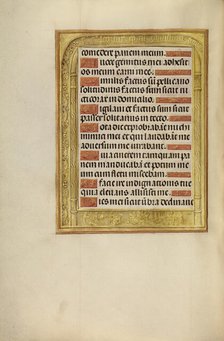 comedere panem meum.
A voce gemitus mei: adhesit
os meum carni mee.
Similis factus sum pellicano
solitudinis factus sum sicut
nicticorax in domicilio.
Vigilaui et factus sum sicut
passer solitarius in tecto.
Tota die exprobrabant michi
inimici mei et qui laudabant
me aduersum me iurabant.
Quia cinerem tamquam pa
nem manducabam et potum me
um cum fletu miscebam.
A facie ire indignationis tue
quia eleuans allisisti me.
Dies mei sicut umbra declinaue